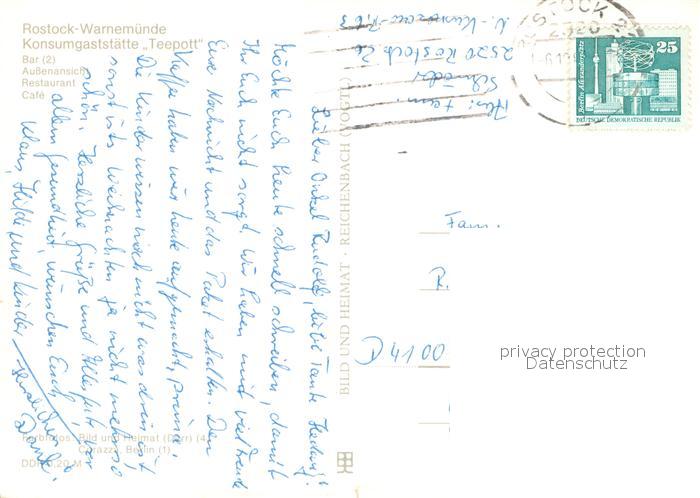 Rostock-Warnemünde
Konsumgaststätte „Teepott"
Bar (2)
Außenansicht
Restaurant
Café
Lieber Onkel Rudolf, liebe Tante Hedwig!
Möchte Euch heute schnell schreiben, damit
Ihr Euch nicht sorgt. Wir haben mit viel Freude
Eure Nachricht und das Paket erhalten. Den
Kaffee haben wir heute aufgemacht, prima.
Die Kinder wissen noch nicht was drin ist
sonst ists Weihnachten ja nicht mehr so
schön. Herzliche Grüße und alles Gute, vor
allem Gesundheit wünschen Euch
Klaus, Hilde und Kinder
Danke.
Farbfotos: Bild und Heimat (Dörr) (4)
Corazza, Berlin (1)
DDR 0,20 M
BILD UND HEIMAT · REICHENBACH (VOGTL)
Abs: Fam.
2520 Rostock 22
ROSTOCK
2520
25
Berlin, Alexanderplatz
DEUTSCHE DEMOKRATISCHE REPUBLIK
Fam.
R.
D 4100
privacy protection
Datenschutz